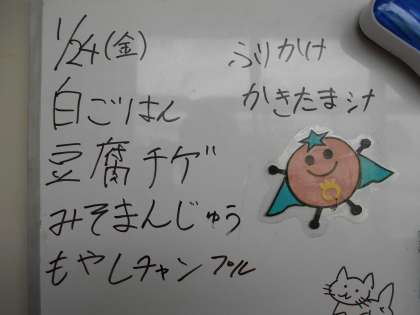 1/24(金)
白ごはん
豆腐チゲ
みそまんじゅう
もやしチャンプル
ふりかけ
かきたま汁